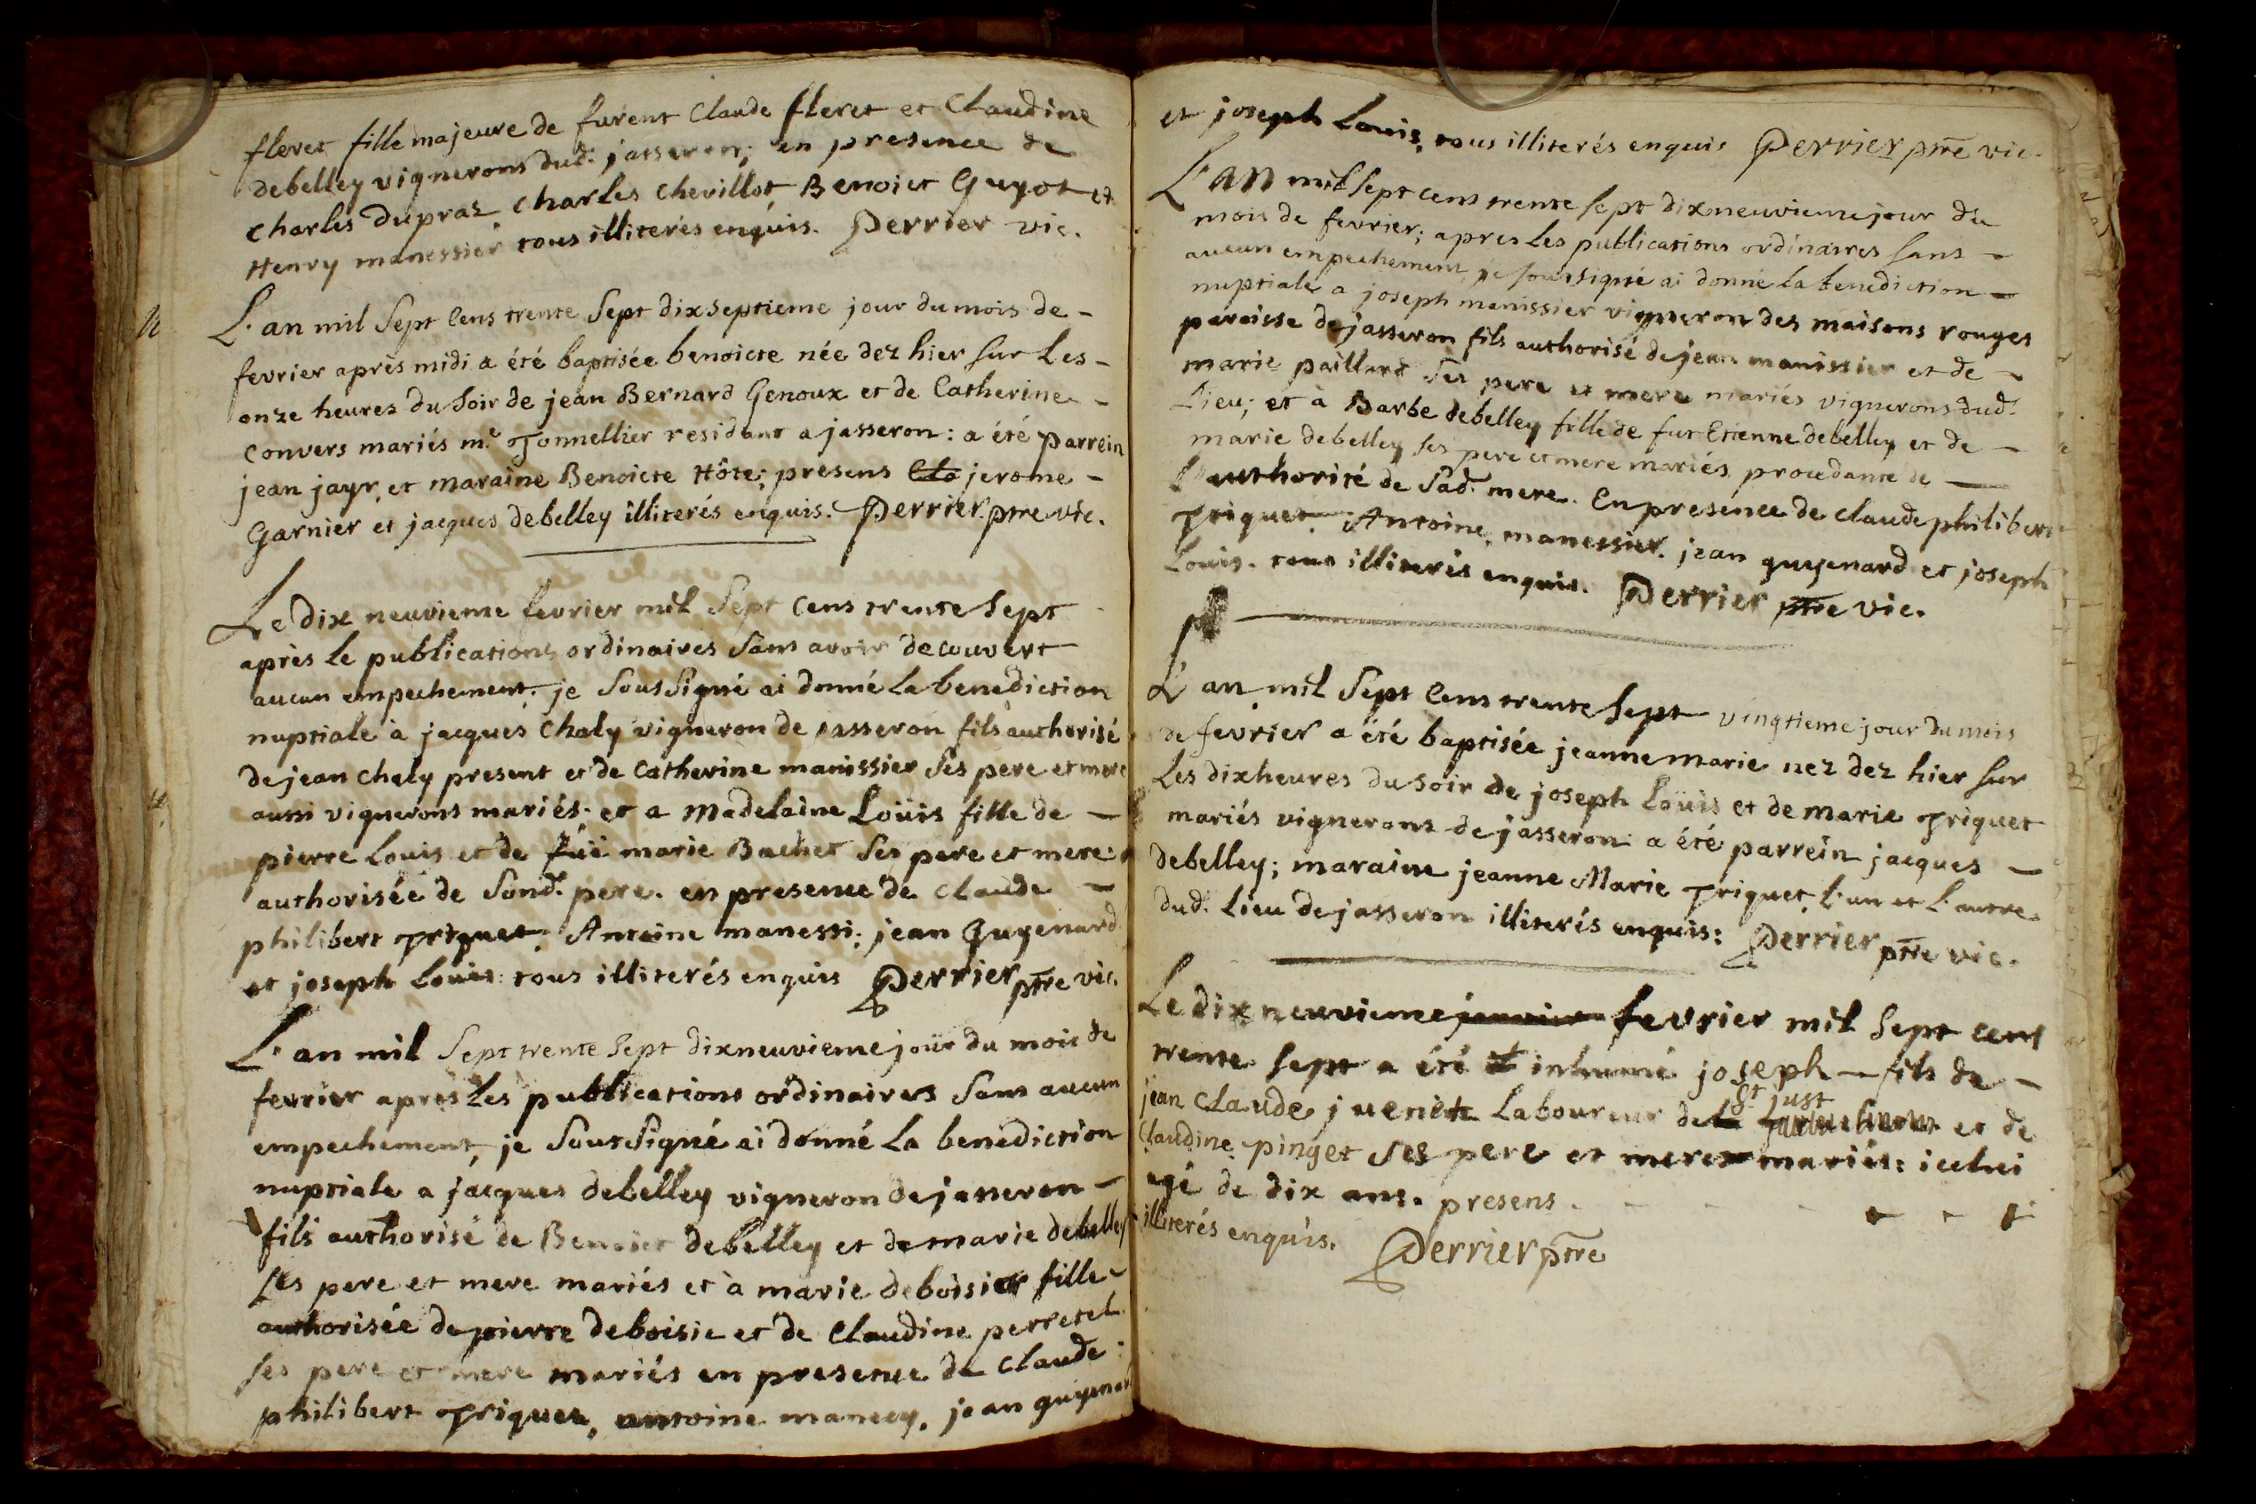 fleret fille majeure de furent Claude fleret et Claudine
debelley vignerons dud. jasseron; en presence de
charles dupraz charles chevillot Benoict Guyot et
Henry manessier tous illiterés enquis. Perrier vic.
L'an mil Sept Cens trente Sept dixseptieme jour du mois de -
fevrier après midi a été baptisée benoicte née dez hier sur Les -
onze heures du Soir de jean Bernard Genoux et de Catherine -
Convers mariés m.e Tonnellier residant a jasseron: a été parrein
jean jayr, et maraine Benoicte Hôte; presens Cla jerome -
Garnier et jacques debelley illiterés enquis. Perrier ptre vic.
Le dix neuvieme fevrier mil Sept Cens trente Sept
après le publications ordinaires Sans avoir decouvert
aucun empechement. je Soussigné ai donné La benediction
nuptiale à jacques Chaly vigneron de jasseron fils authorisé
de jean chaly present et de Catherine manissier Ses pere et mere
aussi vignerons mariés. et a Madelaine Loüis fille de -
pierre Louis et de füe marie Bachet Ses pere et mere:
authorisée de Sond. pere. en presence de Claude -
philibert Triquet. Antoine manessi. jean Guyenard
et joseph Louis tous illiterés enquis Perrier ptre vic.
L'an mil Sept trente Sept dixneuvieme joür du mois de
fevrier apres Les publications ordinaires Sans aucun
empechement, je Soussigné ai donné La benediction
nuptiale a jacques debelley vigneron de jasseron -
fils authorisé de Benoict debelley et de marie debelley
Ses pere et mere mariés et à marie deboisier fille -
authorisée de pierre deboisie et de Claudine perretel
Ses pere et mere mariés en presence de Claude
philibert Triquet, antoine manecy, jean guyenar
et joseph Louis, tous illiterés enquis Perrier ptre vic.
L'AN mil Sept Cens trente Sept dixneuvieme jour du
mois de fevrier; apres Les publications ordinaires Sans -
aucun empechement je soussigné ai donné La benediction -
nuptiale a joseph manissier vigneron des maisons rouges
paroisse de jasseron fils authorisé de jean manissier et de -
marie paillard Ses pere et mere mariés vignerons dud.
Lieu; et à Barbe debelley fille de fut Etienne debelley et de -
marie debelley Ses pere et mere mariés procedante de -
L'authorité de Sad. mere. En présence de Claude philibert
Triquet. Antoine manessier. jean guyenard et joseph
Louis. tous illiterés enquis. Perrier ptre vic.
L'an mil Sept Cens trente Sept vingtieme jour du mois
de fevrier a été baptisée jeanne marie nez dez hier Sur
Les dix heures du Soir de joseph Loüis et de marie Triquet
mariés vignerons de jasseron a été parrein jacques -
debelley; maraine jeanne Marie Triquet L'un et L'autre
dud. Lieu de jasseron illiterés enquis: Perrier ptre vic.
Le dix neuvieme janvier fevrier mil Sept cens
trente Sept a été inhumé joseph - fils de -
St just
jean Claude juenet Laboureur de et de
Claudine pinget Ses pere et mere mariés: icelui
agé de dix ans. presens
illiterés enquis. Perrier ptre